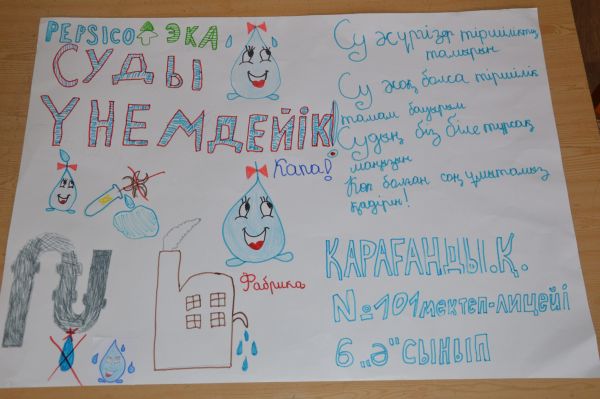 PEPSICO ЭКА
СУДЫ
ҮНЕМДЕЙІК!
Капа!
Фабрика
Су жүргізер тіршіліктің
тамырын
Су жоқ болса тіршілік
тамам бауырым
Судың біз біле тұрсақ
маңызын
Көп болған соң ұмытамыз
қадірін!
ҚАРАҒАНДЫ.Қ.
№101 мектеп-лицейі
6 "ә" СЫНЫП